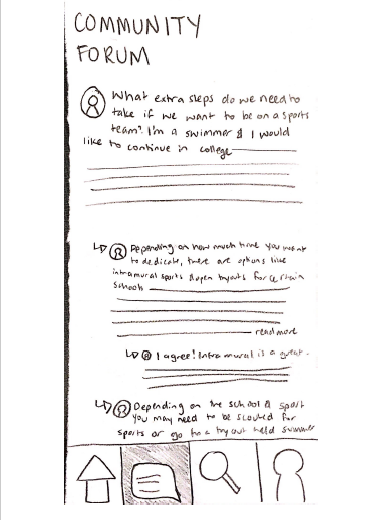 COMMUNITY
FORUM
What extra steps do we need to
take if we want to be on a sports
team? I'm a swimmer & I would
like to continue in college
Depending on how much time you want
to dedicate, there are options like
intramural sports & open tryouts for certain
schools
read more
I agree! Intramural is a great.
Depending on the school & sport
you may need to be scouted for
sports or go to a tryout held summer